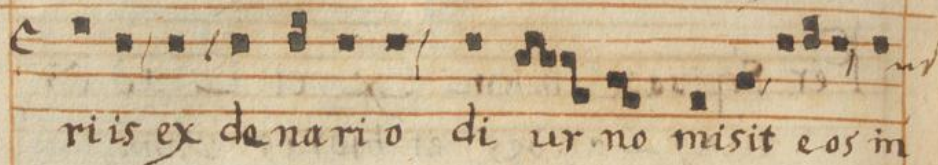 riis ex denario diurno misit eos in